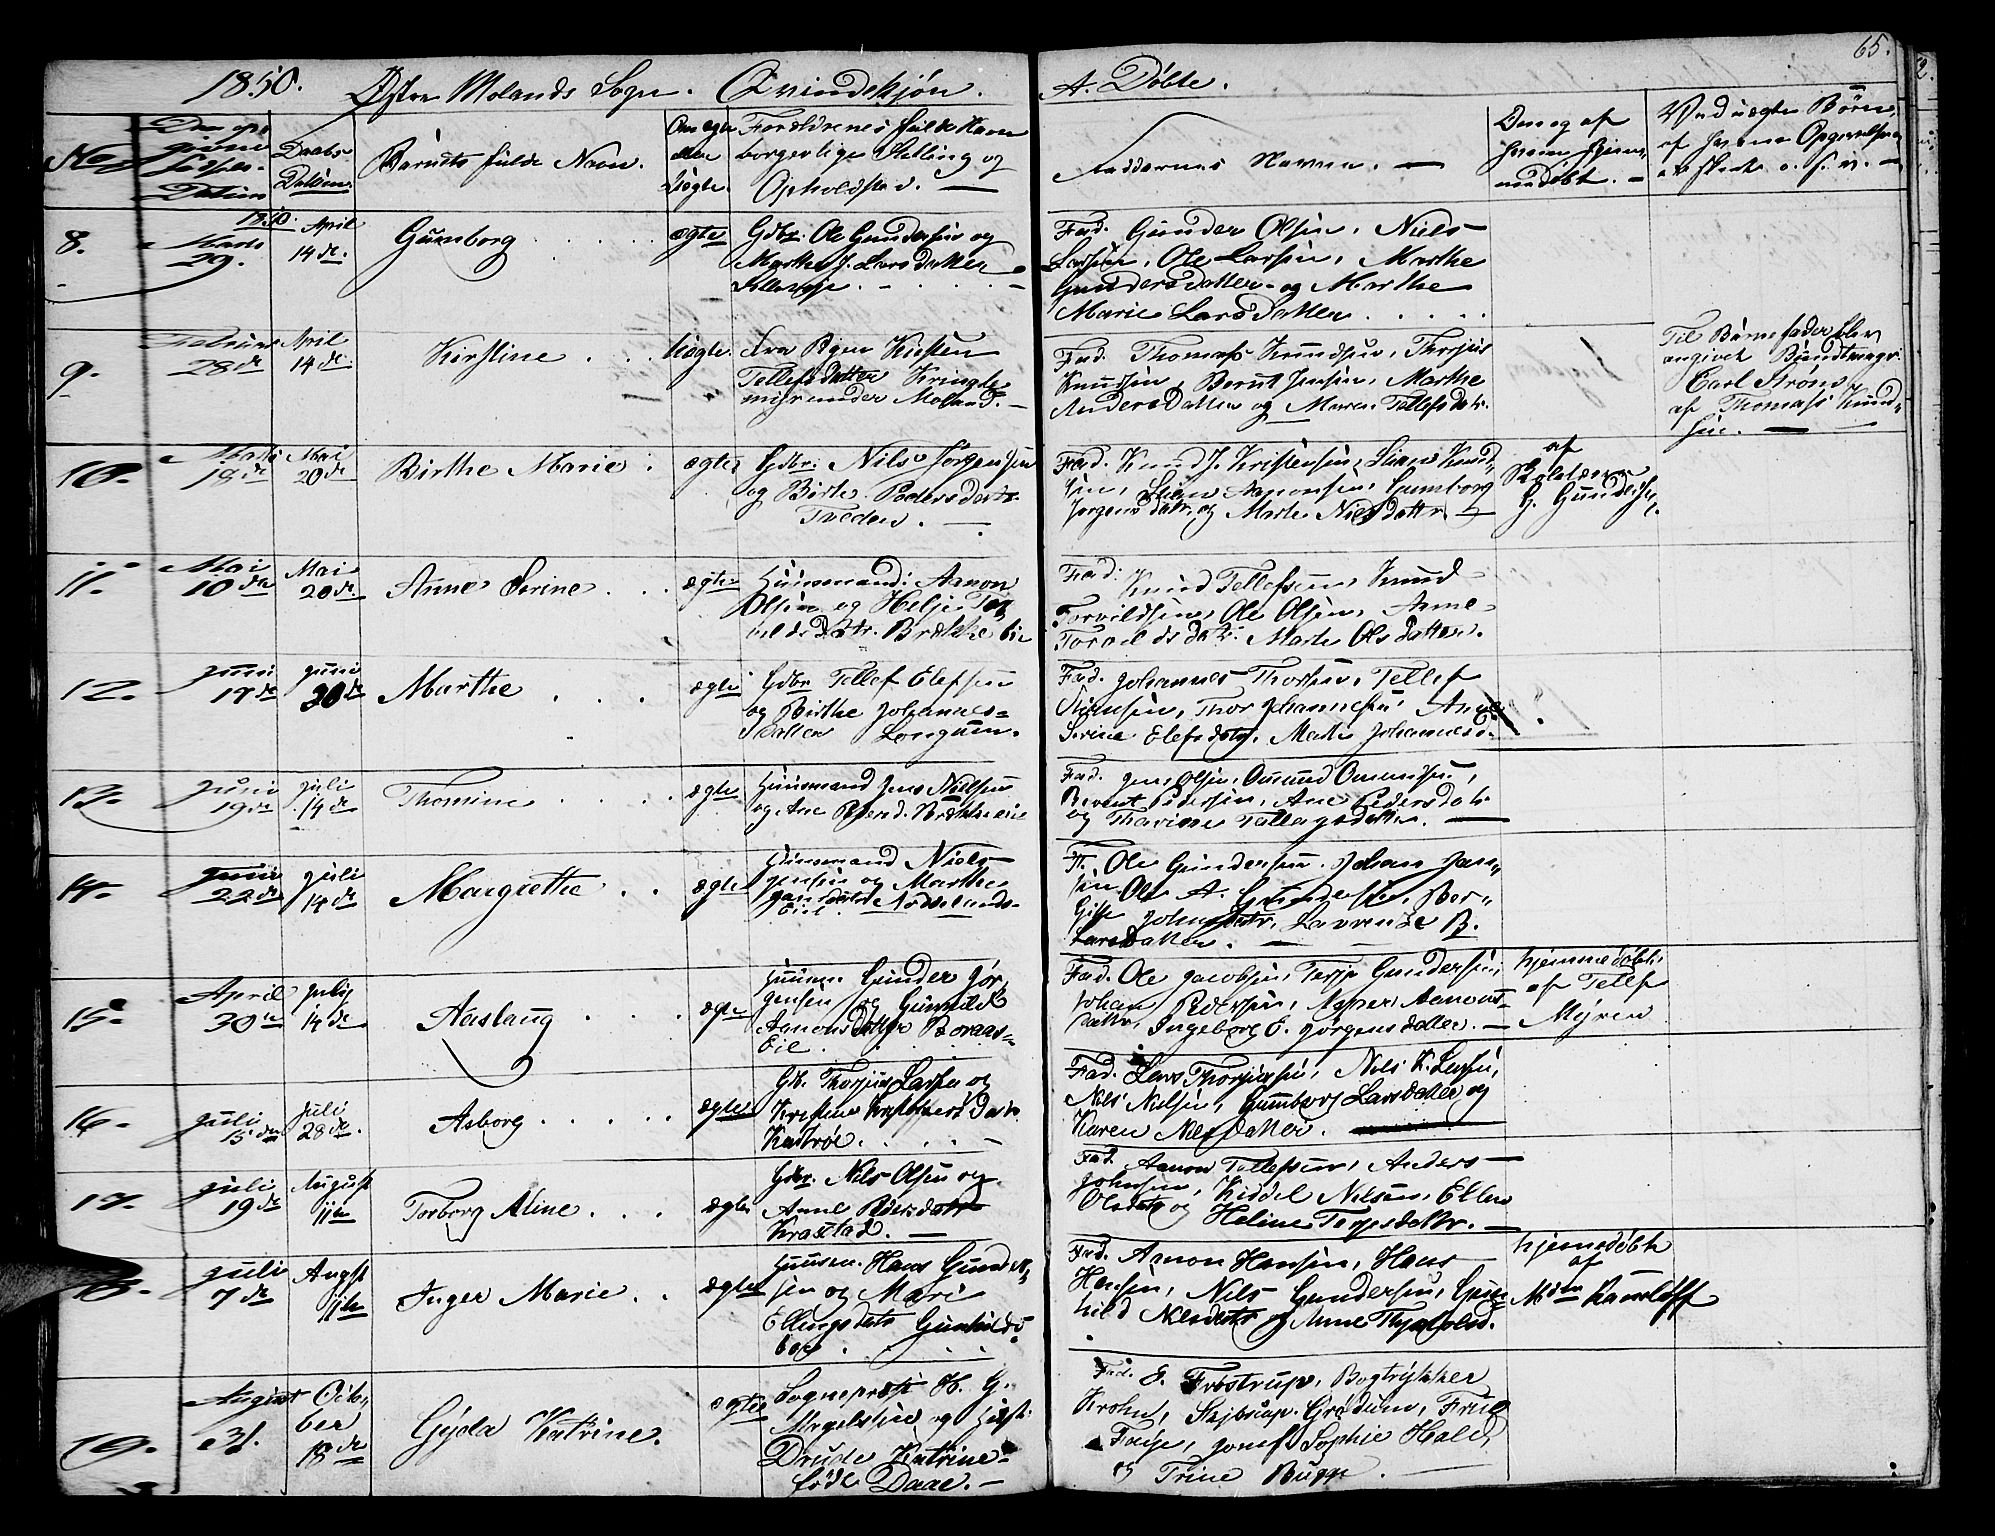 65.
1850. Østre Molands Sogn. Qvindekjøn. A. Døbte.
No
Daabs
Datum.
Barnets fulde Navn.
Om ægte
eller
Uægte.
Forældrenes fulde Navn
borgerlige Stilling og
Opholdsted.
Faddernes Navne.
Om og af
hvem hjem-
medøbt.
Ved uægte Børn,
af hvem Opgivelsen
8.
1850.
Marts
29.
April
14 de.
Gunborg
ægte
Gdbr. Ole Gundersen og
Marthe J. Larsdatter
Fad. Gunder Olsen, Niels
Larsen, Ole Larsen, Marthe
Gundersdatter og Marthe
Marie Larsdatter
9.
Februar
28 de
April
14 de.
Kirstine
Uægte.
Pigen Kirsten
Tellefsdatter Kringle-
myr under Moland.
Fad. Thomass Knudsen, Terjus
Knudsen, Bernt Jensen, Marthe
Andersdatter og Maren Tellefsdatr.
Til Barnefader blev
angivet
Carl Strøm
af Thomass Knud-
sen.
10.
Marts
19 de
Mai
20 de
Birthe Marie
ægte
Gdbr. Nils Jørgensen
og Birthe Pedersdatr.
Tveden.
Fad. Knud J. Kristensen, Simen Knud-
sen, Aanonsen, Gunborg
Jørgensdatr. og Marthe Nielsdattr.
af
G. Gundersen.
11.
Mai
10 de
Mai
20 de.
Anne Serine
ægte
Huusmand: Aanon
Olsen og Helje Tor-
vildsdatr. Brække eie
Fad: Knud Tellefsen, Knud
Torvildsen, Ole Olsen, Anne
Torvildsdatr. Marthe Olsdatter.
12.
Juni
17 de
Juni
30 de
Marthe
ægte
Gdbr Tellef Elefsen
og Birthe Johannes-
datter Longum.
Fad. Johannes Thorsen, Tellef
Simensen, Thor Johannesen, Anne
Serine Elefsdatr, Marthe Johannesd.
13.
Juni
19 de
Juli
14 de
Thomine
ægte
Huusmand Jens Nielsen
og Ane Brække eie
Fad. Jens Olsen, Omund Omundsen,
Bernt Pedersen, Ane Pedersdatr.
og Tharine Tallagsdatter.
14.
Juni
22 de
Juli
14 de
Margrethe
ægte
Huusmand Niels
Jensen og Marthe
Jansdatr Nødelands-
Eie.
F. Ole Gundersen, Johan Jan-
sen, Ole A. Gundersen, Bor-
gitte Johnsdatr, Lavrense B.
Larsdatter.
15.
April
30 te
July
14 de
Aaslaug
ægte
Huusm. Gunder Jør-
gensen og Gunnild
Aanonsdatter Boraas-
Eie.
Fad. Ole Jacobsen, Terje Gundersen,
Johan Pedersen, Agnes Aanons-
datter, Ingeborg E. Jørgensdatter.
hjemmedøbt
af Tellef
Myren
16.
Juli
15 den
Juli
28 de.
Asborg
ægte
Gb. Thorjus Larsen og
Kirstine Kristofersdatr.
Fad. Lars Thorjusen, Nils K. Larsen,
Nils Nielsen, Gunborg Larsdatter og
Karen Nilsdatter.
17.
Juli
19 de
August
11 te
Torborg Aline
ægte
Gdbr. Nils Olsen og
Anne Pedersdatr
Krabstad.
Fad. Aanon Tellefsen, Anders
Johnsen, Kiddel Nilsen, Ellen
Olsdatr og Heline Terjesdatter.
18.
Juli
7 de
Augst
11 te
Inger Marie
ægte
Huusm. Hans Gunder-
sen og Mari
Ellingsdatr
Fad. Aanon Hansen, Hans
Hansen, Nils Gundersen, Gun-
hild Nilsdatr og Anne
hjemedøbt
af
19.
August
31.
Octo-
ber
18 de
Gyda Katrine.
ægte
Sogneprest H. G.
og Hust.
Drude Katrine
født Daae.
Fad. E. Frøstrup, Bogtrykker
Krohn, Skibscap. Grødum, Frue
Faye, Jomf. Sophie Hald,
og Trine Bugge.